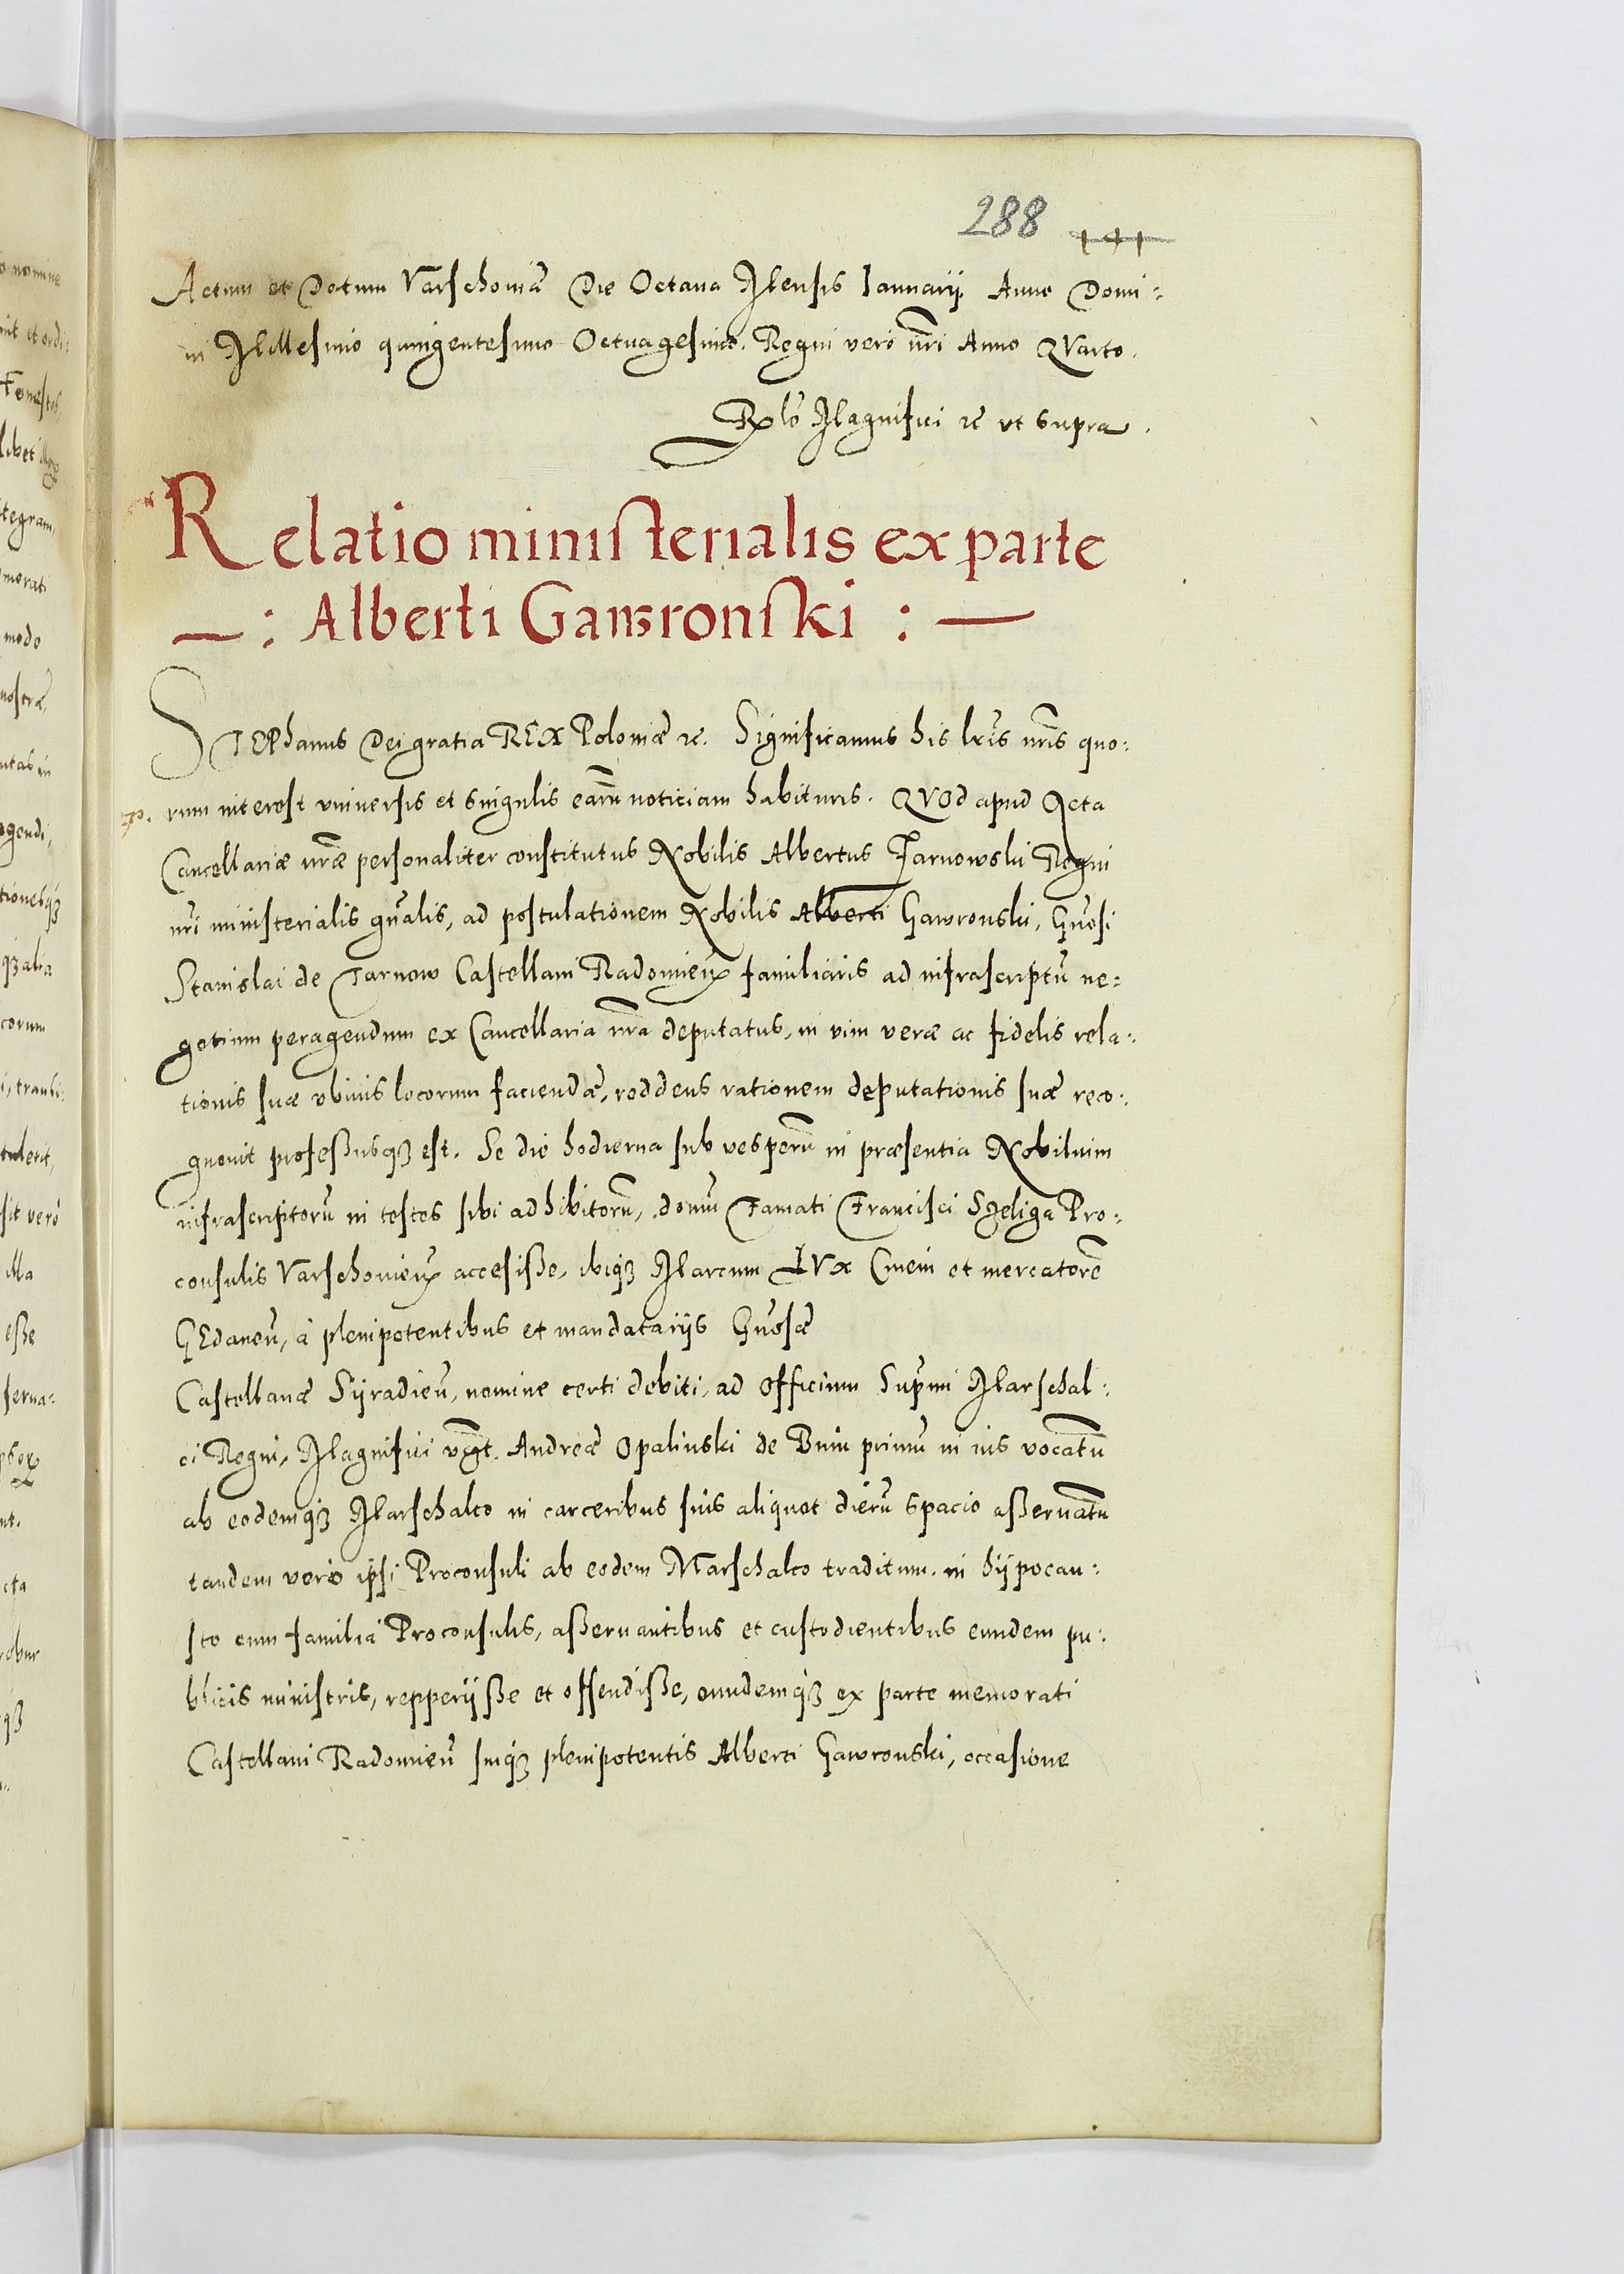 288
Actum et Datum Varschoviæ Die Octava Mensis Ianuarij Anno Domi:
ni Millesimo quingentesimo Octuagesimo. Regni vero nri Anno QVarto.
Rlo Magnifici etc ut supra.
Relatio ministerialis ex parte
—: Alberti Gawronski :—
STEPhanus Dei gratia REX Poloniæ etc. Significamus his lris nris quo:
rum interest vniversis et singulis earum noticiam habituris. QVOd apud Acta
Cancellariæ nræ personaliter constitutus Nobilis Albertus Tarnowski Regni
nri ministerialis gnalis, ad postulationem Nobilis Alberti Gawronski, Gnosi
Stanislai de Tarnow Castellani Radomien familiaris ad infrascriptu ne:
gotium peragendum ex Cancellaria nra deputatus, in vim veræ ac fidelis rela:
tionis suæ vbivis locorum faciendæ, reddens rationem deputationis suæ reco:
gnovit professusqz est. Se die hodierna sub vesperu in præsentia Nobilium
infrascriptoru in testes sibi adhibitoru, domu Famati Francisci Szeliga Pro:
consulis Varschovien accessisse, ibiqz Marcum LVx Civem et mercatore
GEdaneu, à plenipotentibus et mandatarijs Gnosæ
Castellanæ Syradien, nomine certi debiti, ad officium Supmi Marschal:
ci Regni, Magnifici vgt. Andreæ Opalinski de Bnin primu in ius vocatu
ab eodemqz Marschalco in carceribus suis aliquot dieru spacio asservatu
tandem vero ipsi Proconsuli ab eodem Marschalco traditum. in hypocau:
sto cum familia Proconsulis, asservantibus et custodientibus eundem pu:
blicis ministris, repperijsse et offendisse, eundemqz ex parte memorati
Castellani Radomien suiqz plenipotentis Alberti Gawronski, occasione